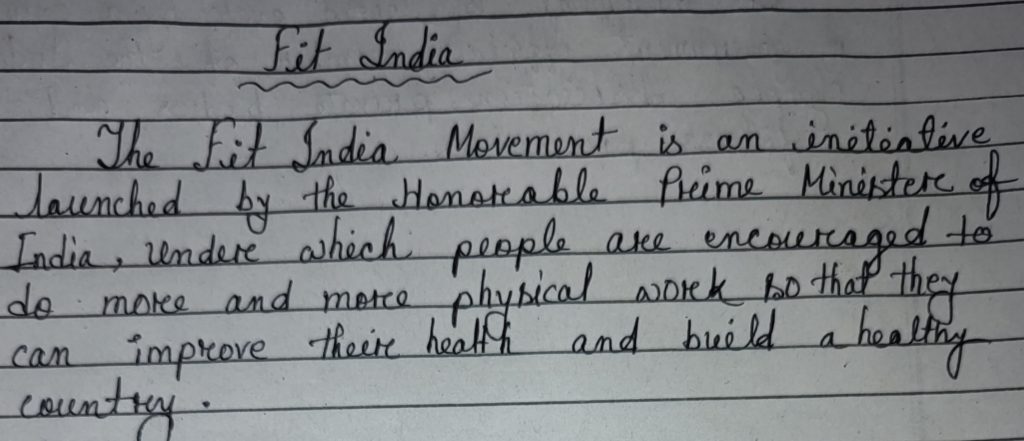 Fit India
The Fit India Movement is an initiative
launched by the Honorable Prime Minister of
India, under which people are encouraged to
do more and more physical work so that they
can improve their health and build a healthy
country.